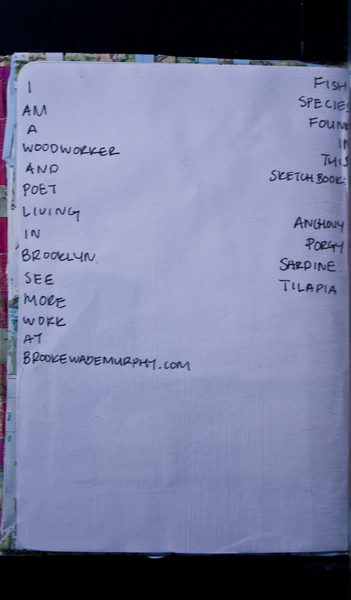 I
AM
A
WOODWORKER
AND
POET
LIVING
IN
BROOKLYN.
SEE
MORE
WORK
AT
BROOKEWADEMURPHY.COM
FISH
SPECIES
FOUND
IN
THIS
SKETCHBOOK:
ANCHOVY
PORGY
SARDINE
TILAPIA